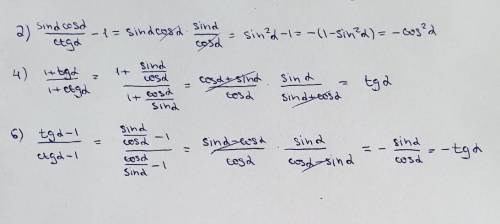 2) (sinα cosα)/(ctgα) - 1 = sinα cosα · (sinα)/(cosα) = sin²α - 1 = -(1 - sin²α) = -cos²α
4) (1 + tgα)/(1 + ctgα) = (1 + (sinα)/(cosα))/(1 + (cosα)/(sinα)) = (cosα + sinα)/(cosα) · (sinα)/(sinα + cosα) = tgα
6) (tgα - 1)/(ctgα - 1) = ((sinα)/(cosα) - 1)/((cosα)/(sinα) - 1) = (sinα - cosα)/(cosα) · (sinα)/(cosα - sinα) = - (sinα)/(cosα) = -tgα